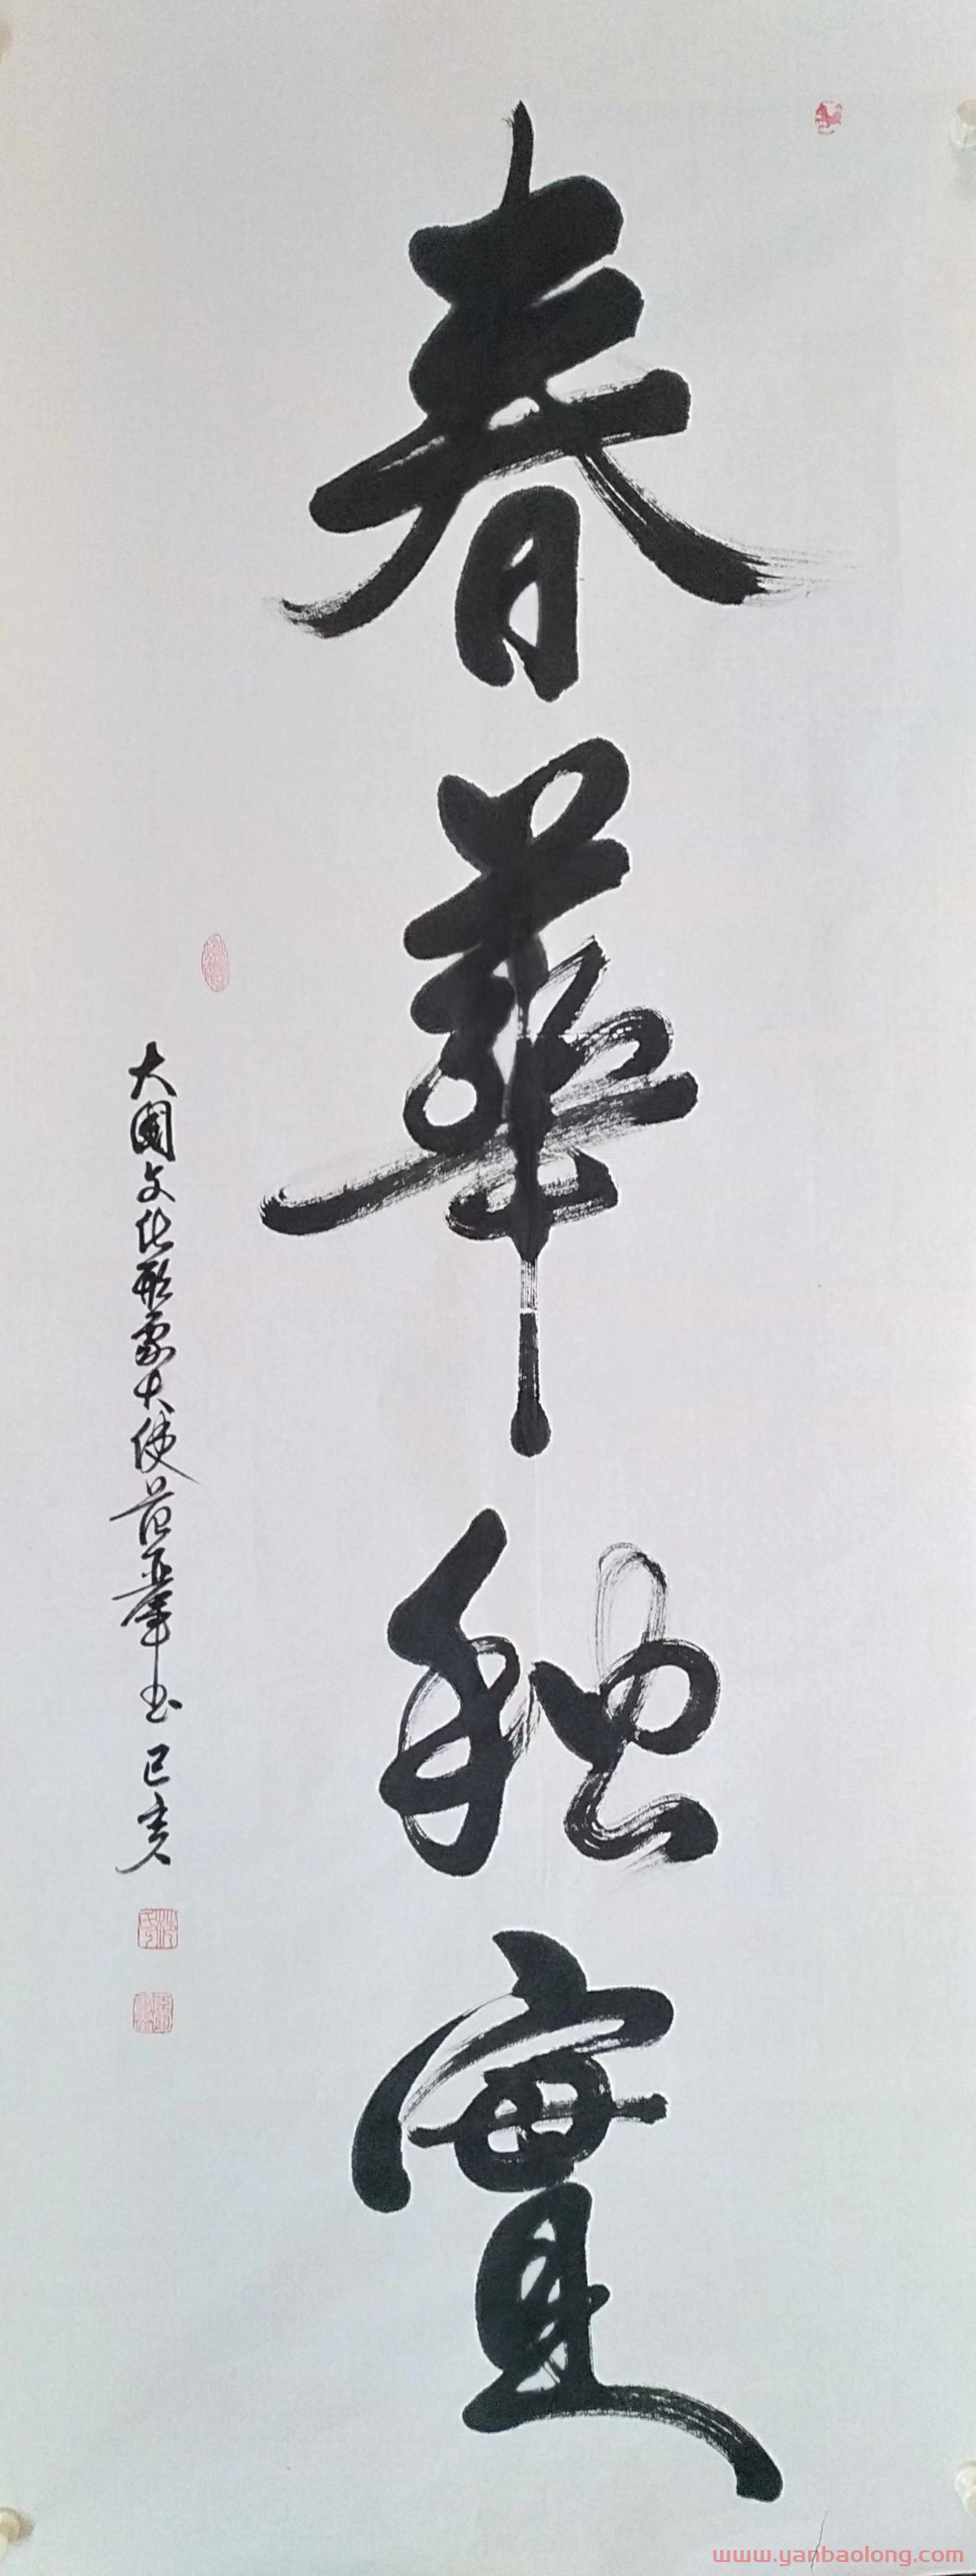 春華秋實
大國文化形象大使范亚犖书 己亥
www.yanbaolong.com